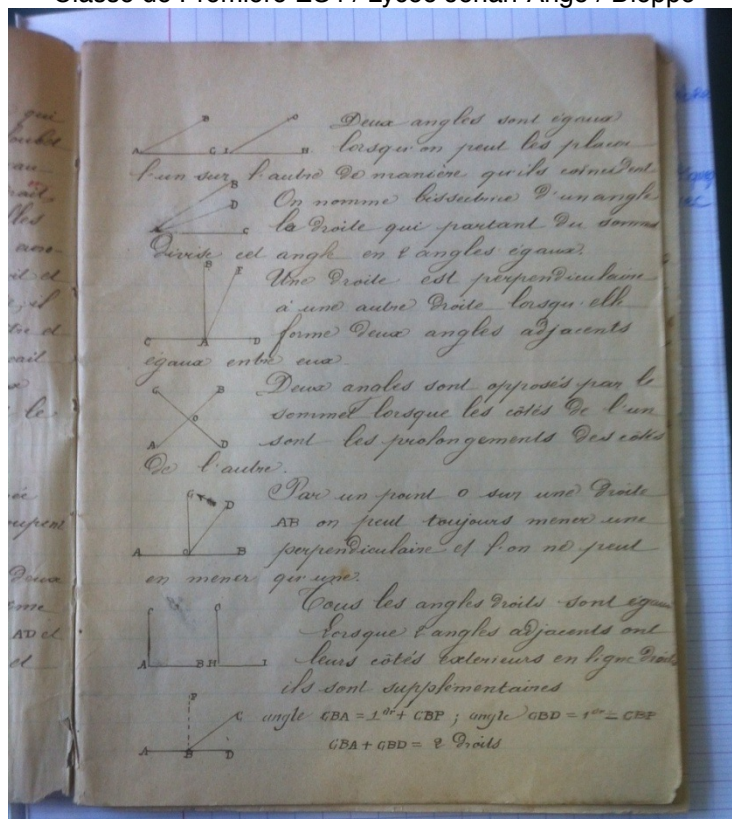 Classe de Première ES1 / Lycée Jehan Ango / Dieppe
Deux angles sont égaux
lorsqu'on peut les placer
l'un sur l'autre de manière qu'ils coïncident
On nomme bissectrice d'un angle
la droite qui partant du sommet
divise cet angle en 2 angles égaux.
Une droite est perpendiculaire
à une autre droite lorsqu'elle
forme deux angles adjacents
égaux entre eux.
Deux angles sont opposés par le
sommet lorsque les côtés de l'un
sont les prolongements des côtés
de l'autre.
Par un point O sur une droite
AB on peut toujours mener une
perpendiculaire et l'on ne peut
en mener qu'une.
Tous les angles droits sont égaux
Lorsque 2 angles adjacents ont
leurs côtés extérieurs en ligne droite
ils sont supplémentaires
angle CBA = 1 dr + CBP ; angle CBD = 1 dr = CBP
CBA + CBD = 2 droits